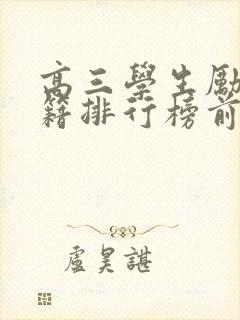 高三學生勵
籍排行榜前
盧昊諶